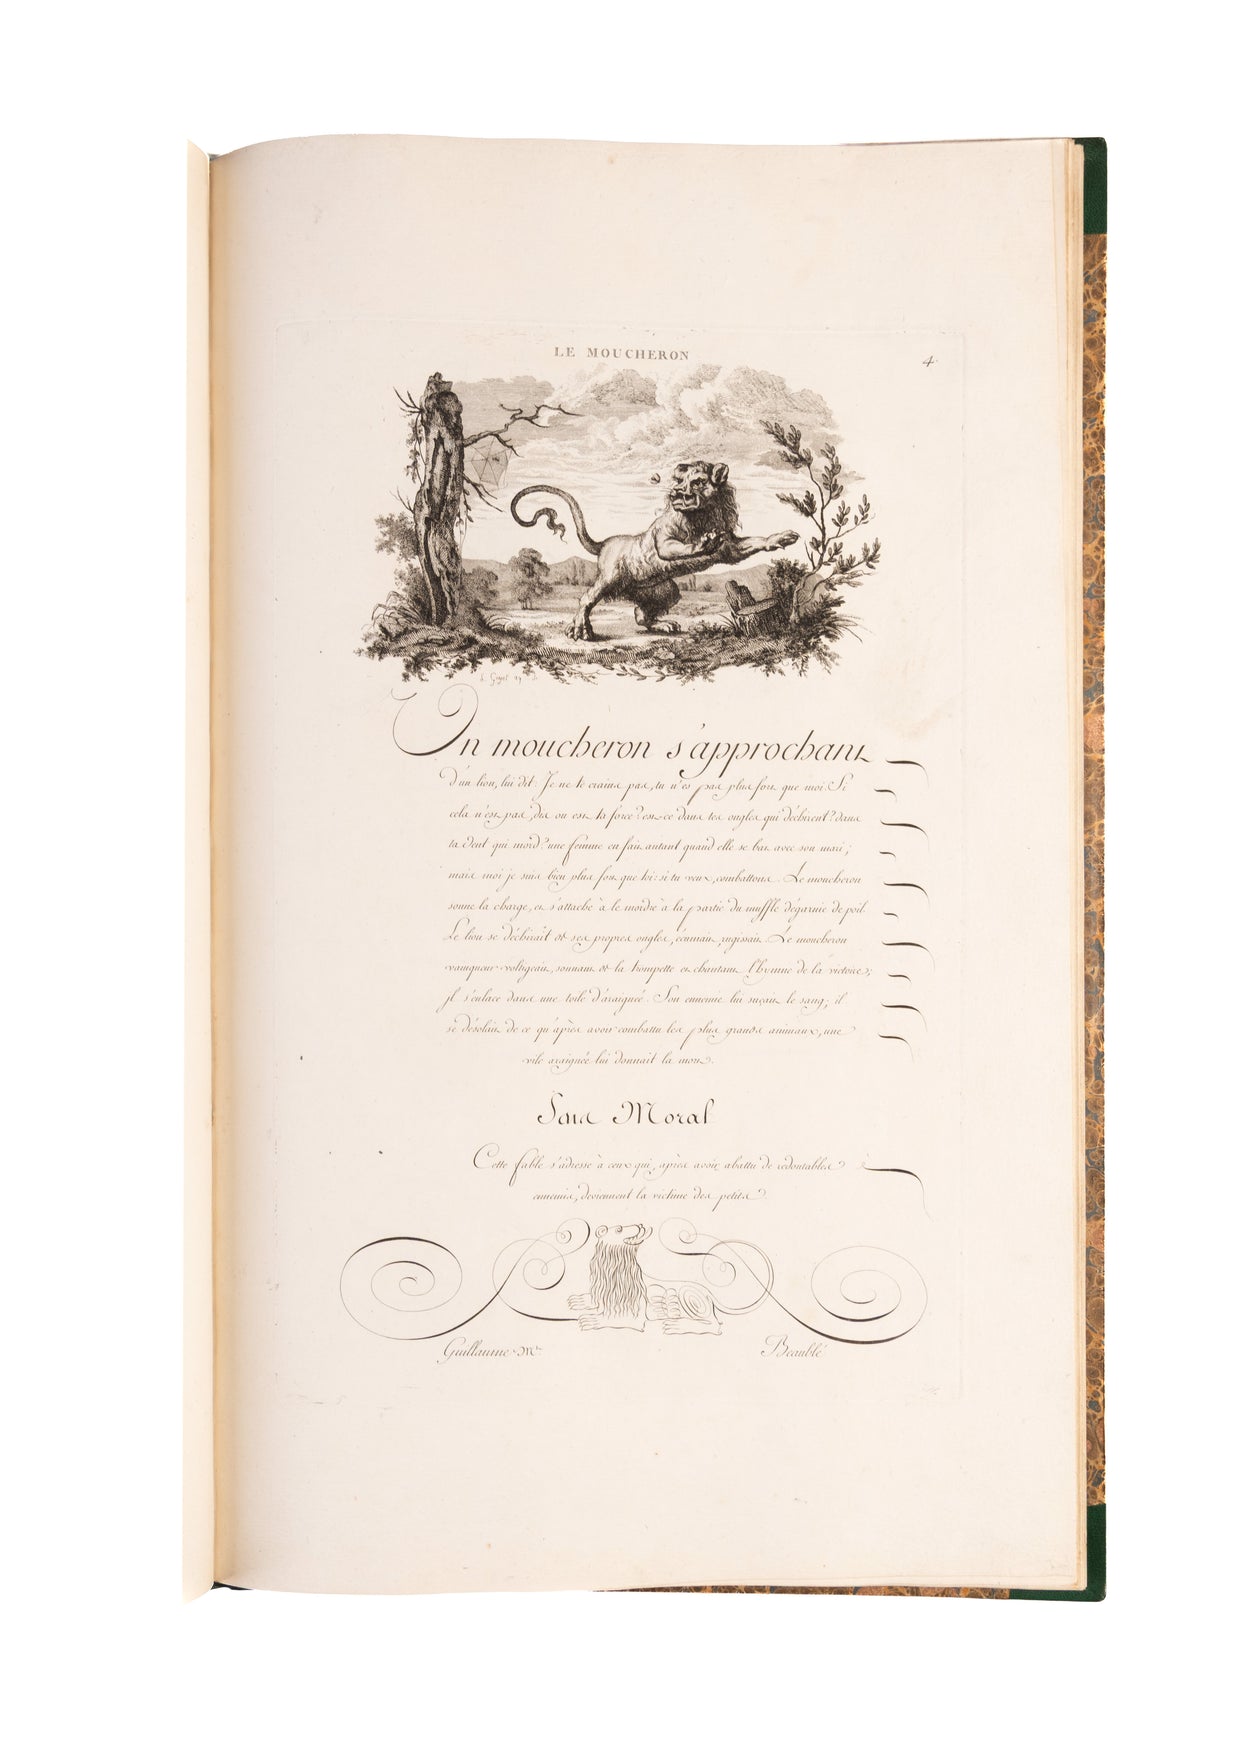 LE MOUCHERON
4.
Un moucheron s'approchant
d'un lion, lui dit: Je ne te crains pas, tu n'es pas plus fort que moi. Si
cela n'est pas, dis ou est ta force? est-ce dans tes ongles qui déchirent? dans
ta dent qui mord? une femme en fait autant quand elle se bat avec son mari;
mais moi je suis bien plus fort que toi: si tu veux, combattons. Le moucheron
sonne la charge, et s'attache à le mordre à la partie du muffle dégarnie de poil.
Le lion se déchirait de ses propres ongles, écumait, rugissait. Le moucheron
vainqueur voltigeait, sonnant de la trompette et chantant l'hymne de la victoire;
il s'enlace dans une toile d'araignée. Son ennemie lui suçait le sang; il
se désolait de ce qu'après avoir combattu les plus grands animaux, une
vile araignée lui donnait la mort.
Sens Moral
Cette fable s'adresse à ceux qui, après avoir abattu de redoutables
ennemis, deviennent la victime des petits.
Guillaume Mt
Beaublé